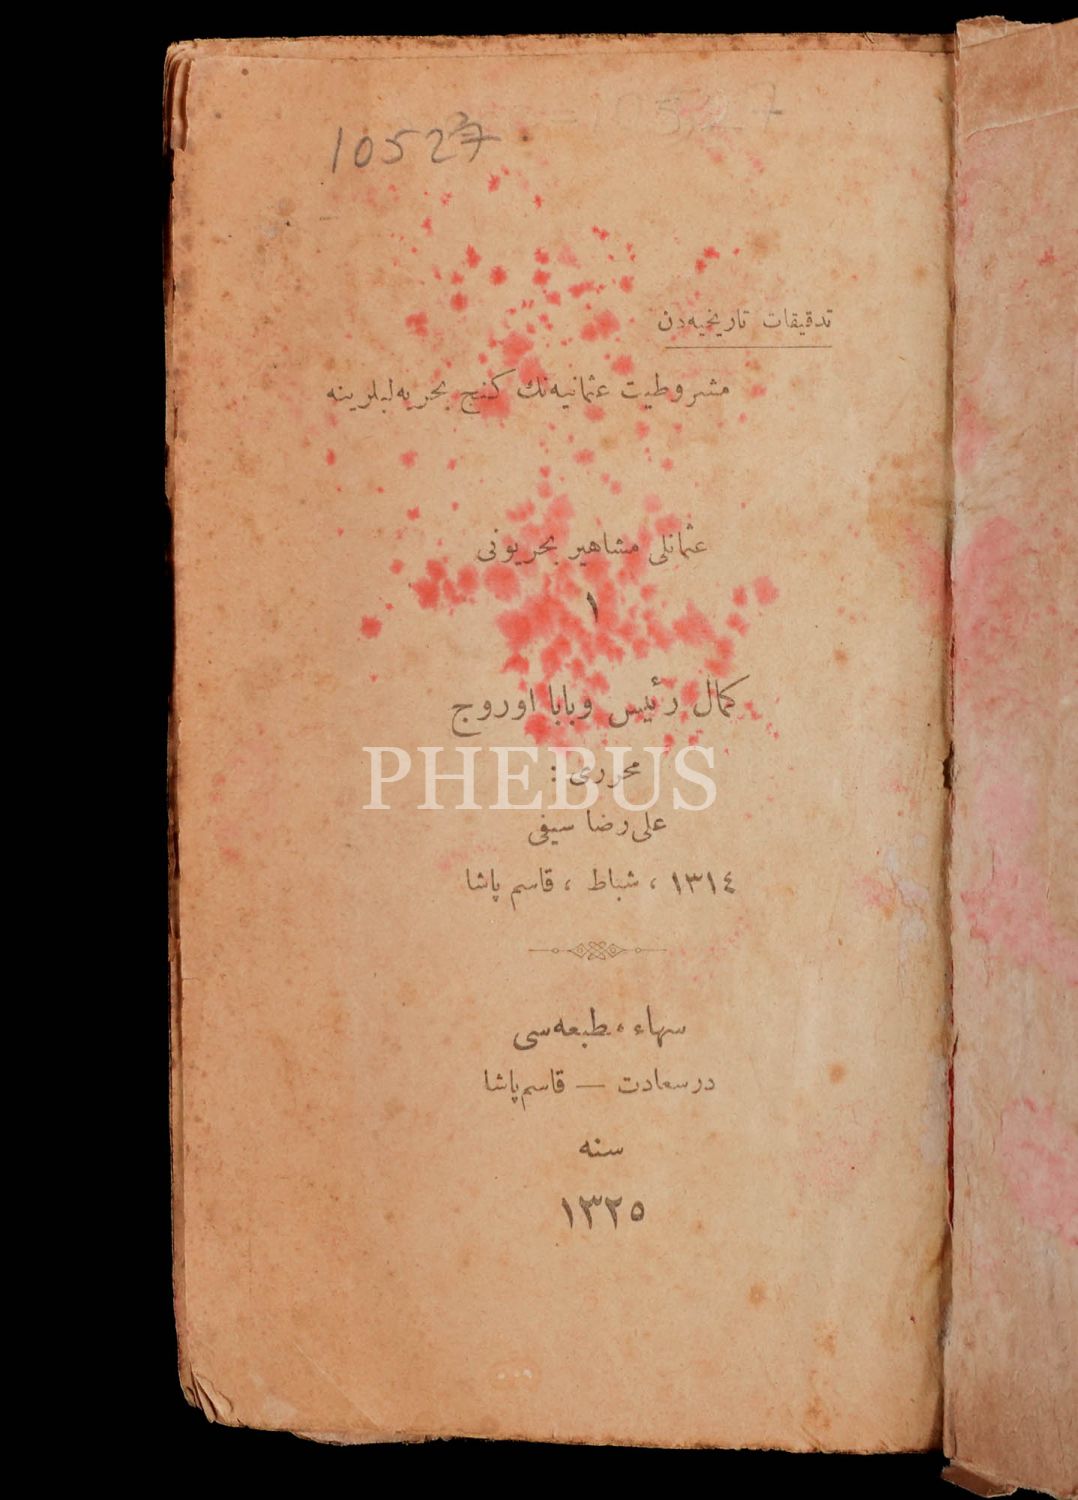 10527
تدقیقات تاریخیه‌دن
مشروطیت عثمانیه‌نك كنج بحریه‌لیلرینه
عثمانلی مشاهیر بحریونی
١
كمال رئیس وبابا اوروج
PHEBUS
محرری :
علی رضا سیفی
١٣١٤ ، شباط ، قاسم پاشا
سهاء مطبعه‌سی
درسعادت — قاسم‌پاشا
سنه
١٣٢٥